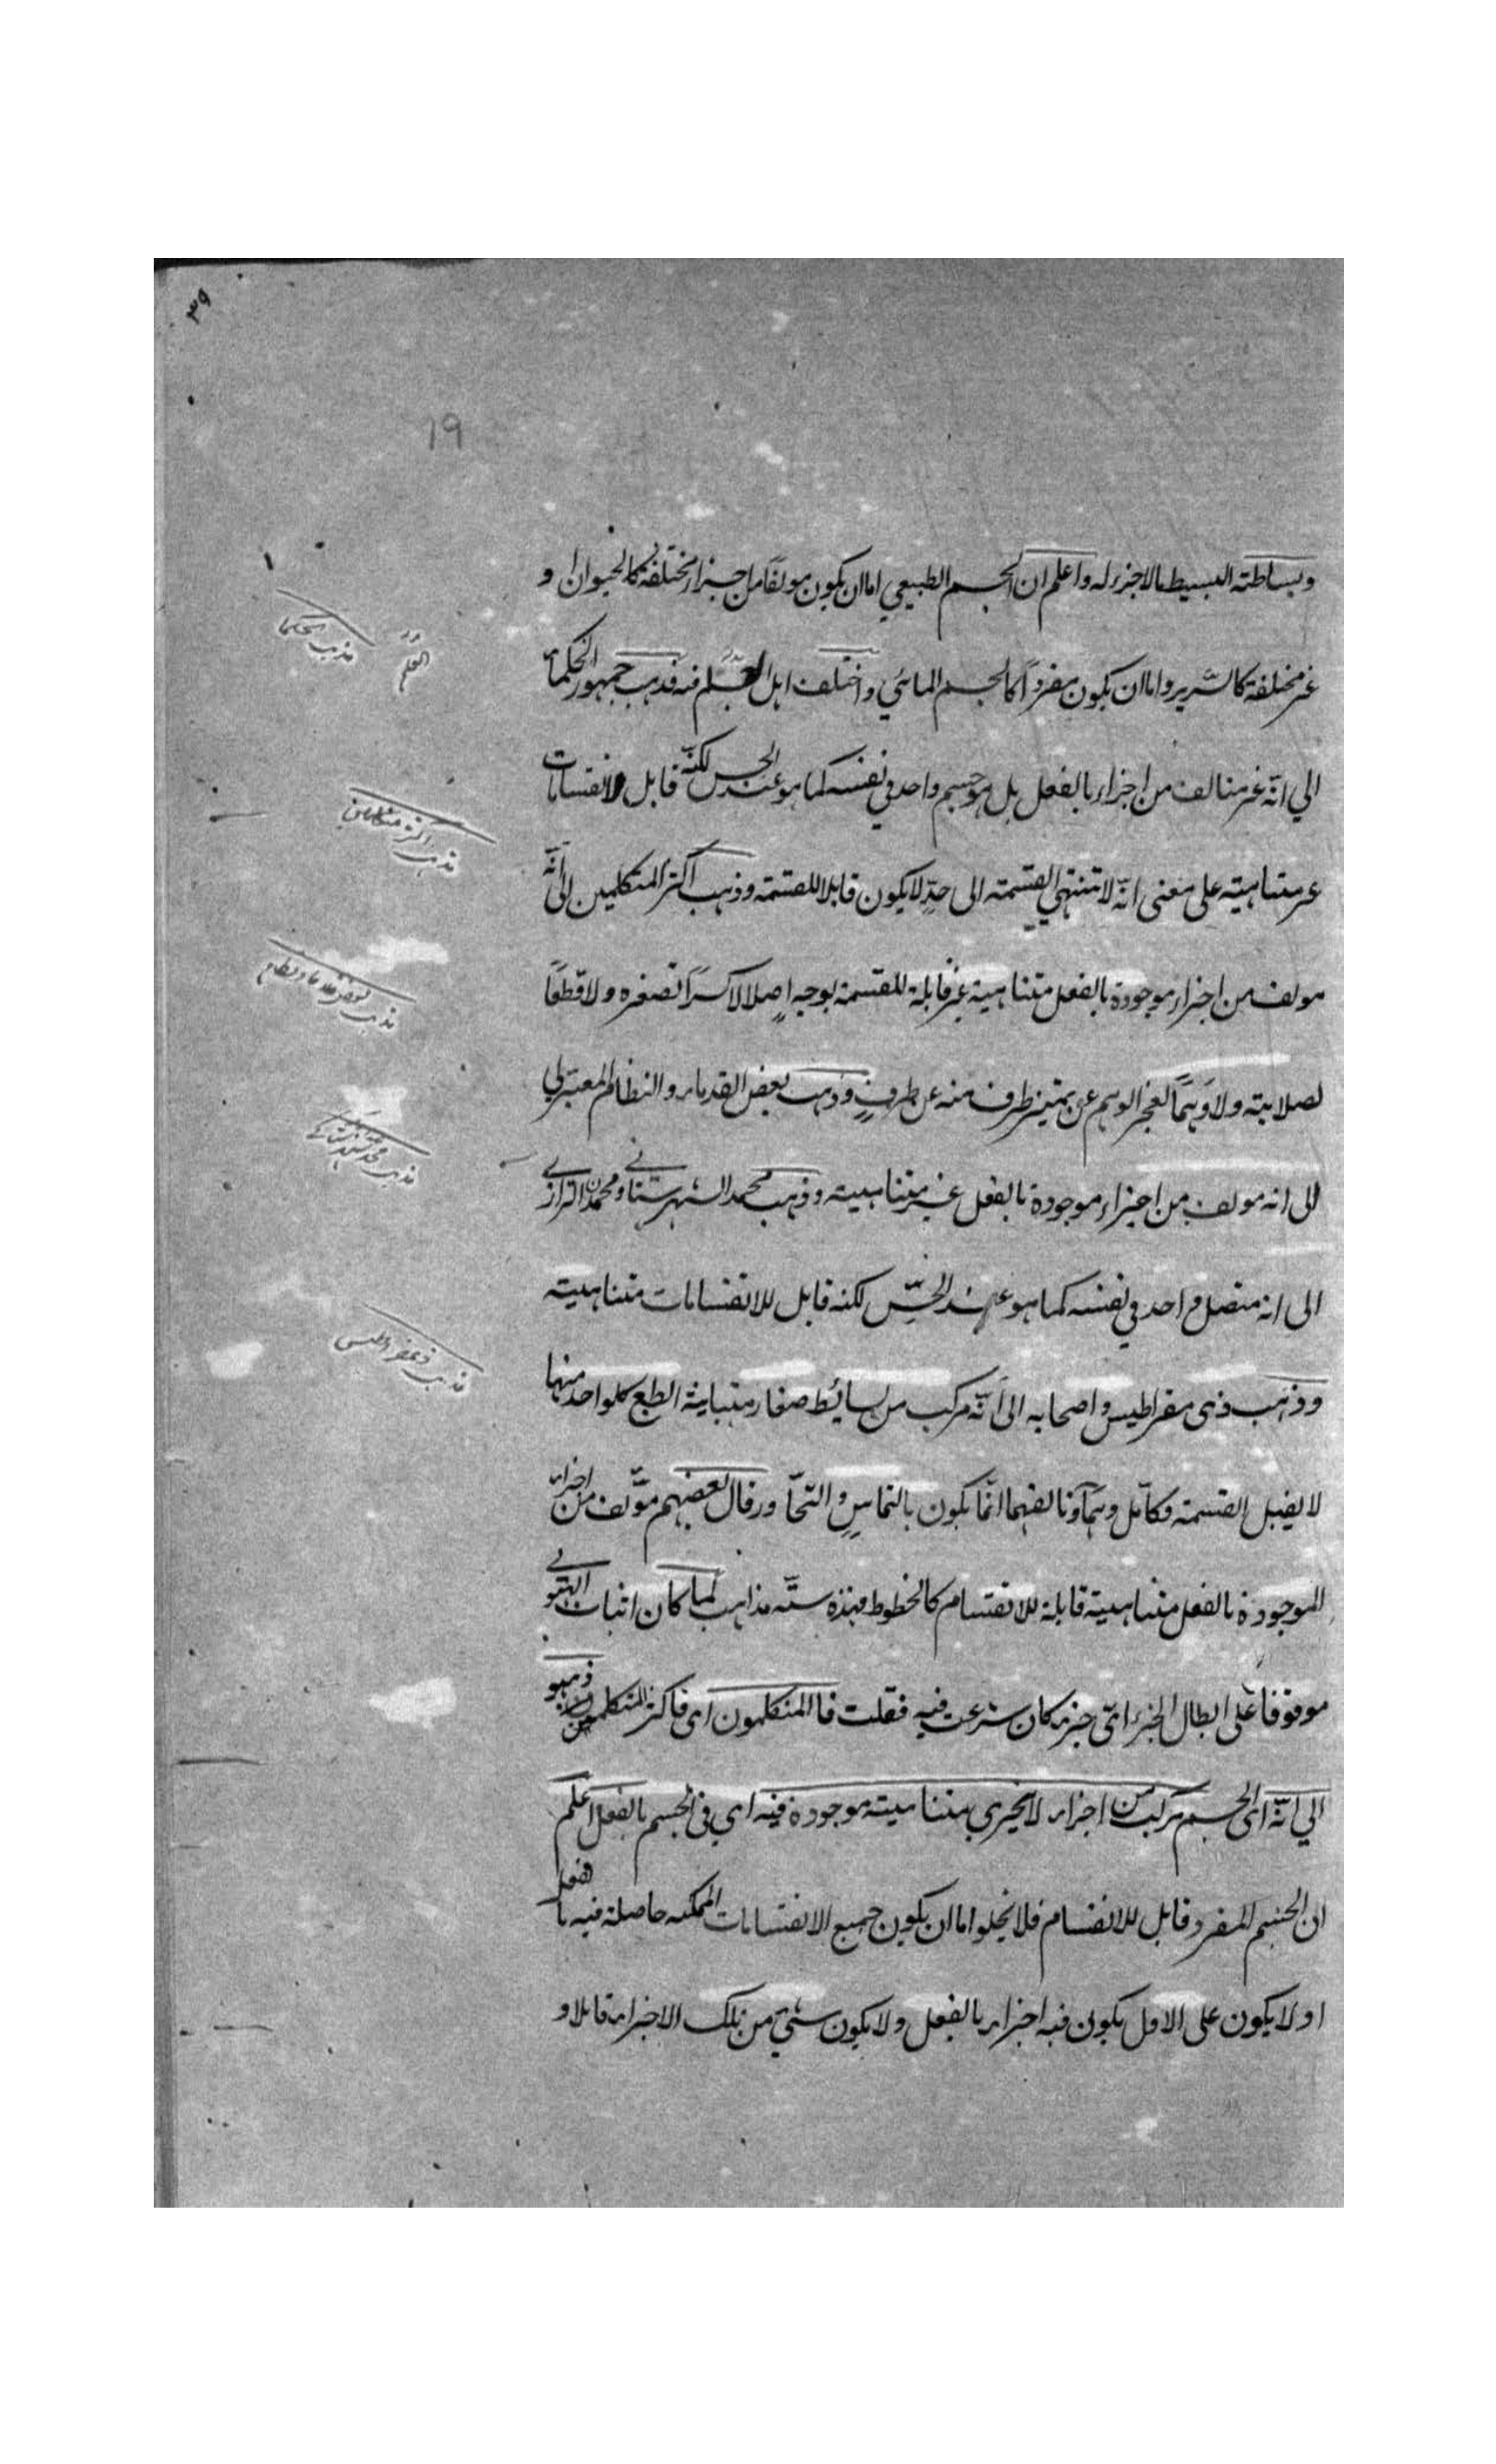 ٣٩
19
وبساطته البسيط مالاجزء له واعلم ان الجسم الطبيعي اما ان يكون مولفا من اجزاء مختلفة كالحيوان او
غير مختلفة كالسرير واما ان يكون مفرداً كالجسم المائي واختلف اهل العلم فيه فذهب جمهور الحكماء
العلم
مذهب الحكما
الي انّه غير متالف من اجزاء بالفعل بل هو جسم واحد في نفسه كما هو عند الحس لكنّه قابل لانقسامات
مذهب اكثر متكلمين
غير متناهيته على معنى انّه لا تنتهي القسمته الى حدٍّ لا يكون قابلا للقسمته وذهب اكثر المتكلمين الى انّه
مولف من اجزاء موجودة بالفعل متناهية غير قابلة للقسمة بوجه اصلا لا كسراً لصغره ولا قطعاً
مذهب بعض قدما ونظام
لصلابته ولا وَهمًا لعجز الوهم عن تميز طرف منه عن طرفٍ وذهب بعض القدماء والنظام المعتزلي
الى انه مولف من اجزاء موجودة بالفعل غير متناهيته وذهب محمد الشهرستاني ومحمد الرازي
مذهب محمد شهرستانى
الى انه متصل واحد في نفسه كما هو عند الحسِّ لكنه قابل للانقسامات متناهيته
مذهب ذيمقراطيس
وذهب ذى مقراطيس واصحابه الى انّه مركب من بسائط صغار متباينة الطبع كلواحد منها
لا يقبل القسمته فكا بل وهماً وتالفهما انّما يكون بالتماسِ والتحاور وقال بعضهم مؤلف من اجزاء
الموجودة بالفعل متناهية قابلة للانقسام كالخطوط فهذه ستّه مذاهب لما كان اثبات الهيو
موقوفا على ابطال الجزء اىّ جزء كان شرعت فيه فقلت فا المتكلمون اى فاكثر المتكلمين ذهبو
الي انّه اى الجسم مركب من اجزاء لا يتجزي متناهيته موجودة فيه اي فى الجسم بالفعل اعلم
ان الجسم المفرد قابل للانقسام فلا يخلوا اما ان يكون جميع الانقسامات الممكنه حاصلة فيه بالفعل
او لا يكون على الاول يكون فيه اجزاء بالفعل ولا يكون شيٍ من تلك الاجزاء قابلا و